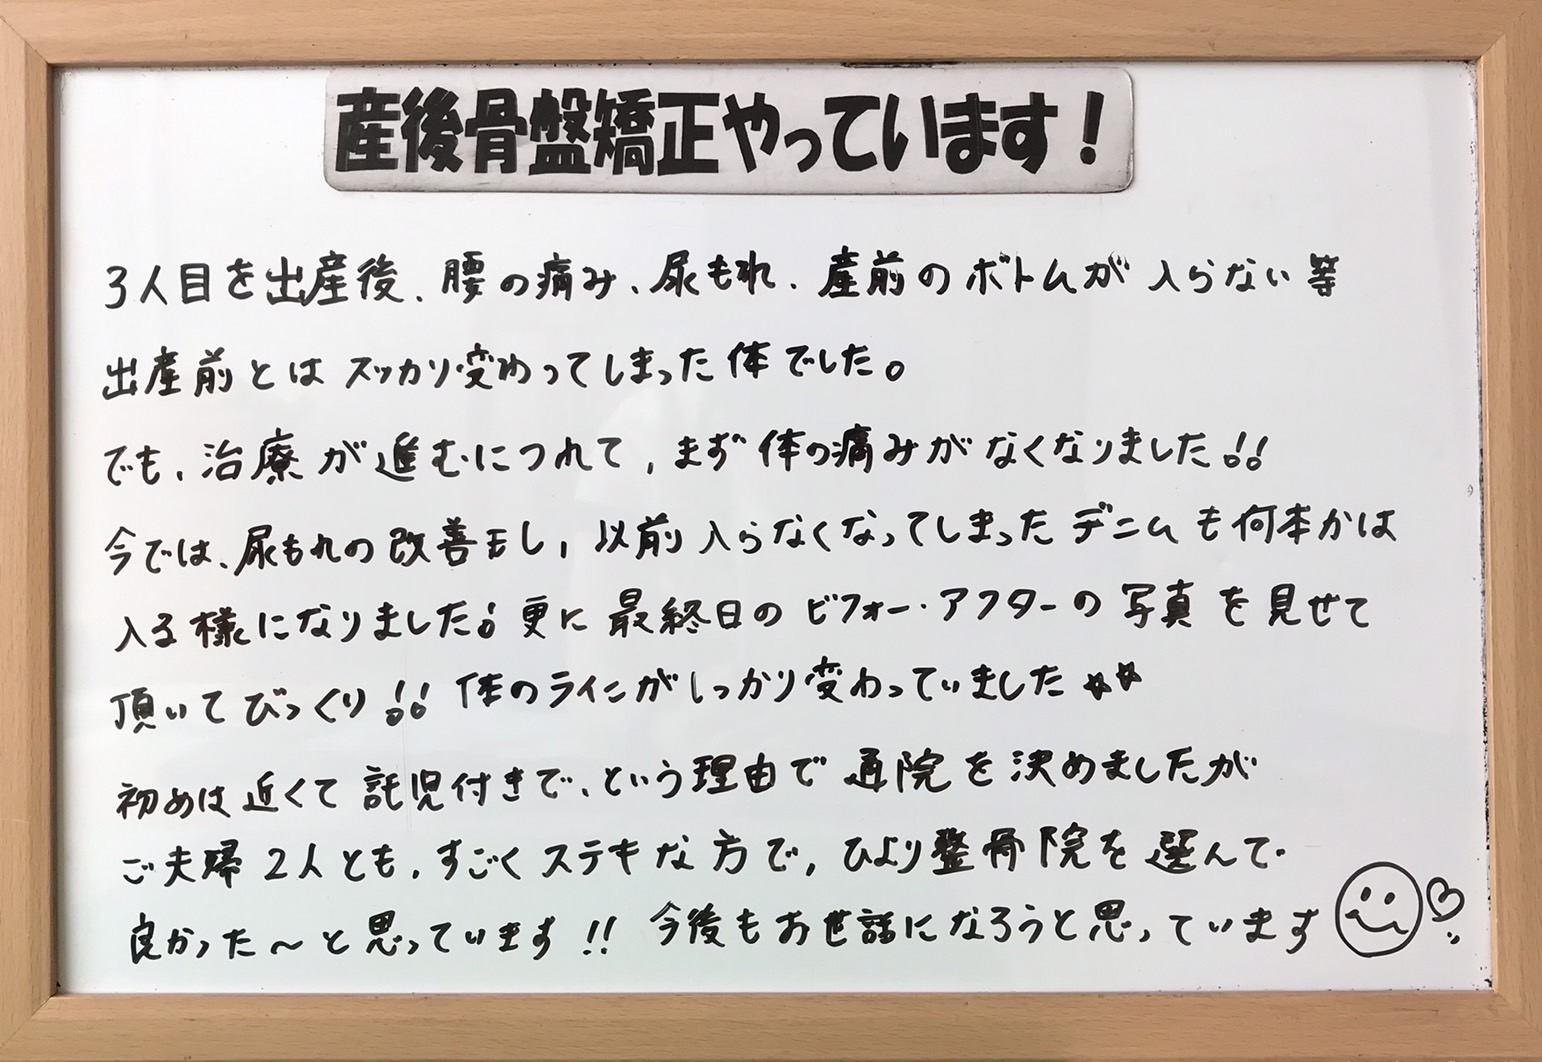 産後骨盤矯正やっています！
3人目を出産後、腰の痛み、尿もれ、産前のボトムが入らない等
出産前とはスッカリ変わってしまった体でした。
でも、治療が進むにつれて、まず体の痛みがなくなりました!!
今では、尿もれの改善もし、以前入らなくなってしまったデニムも何本かは
入る様になりました!更に最終日のビフォー・アフターの写真を見せて
頂いてびっくり!!体のラインがしっかり変わっていました☆☆
初めは近くて託児付きで、という理由で通院を決めましたが
ご夫婦2人とも、すごくステキな方で、ひより整骨院を選んで
良かった～と思っています!!今後もお世話になろうと思っています